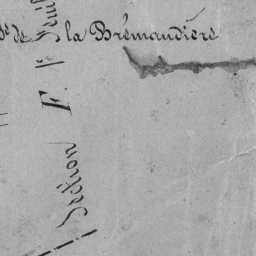 de la Brémaudière
Section F. 1re Feuil